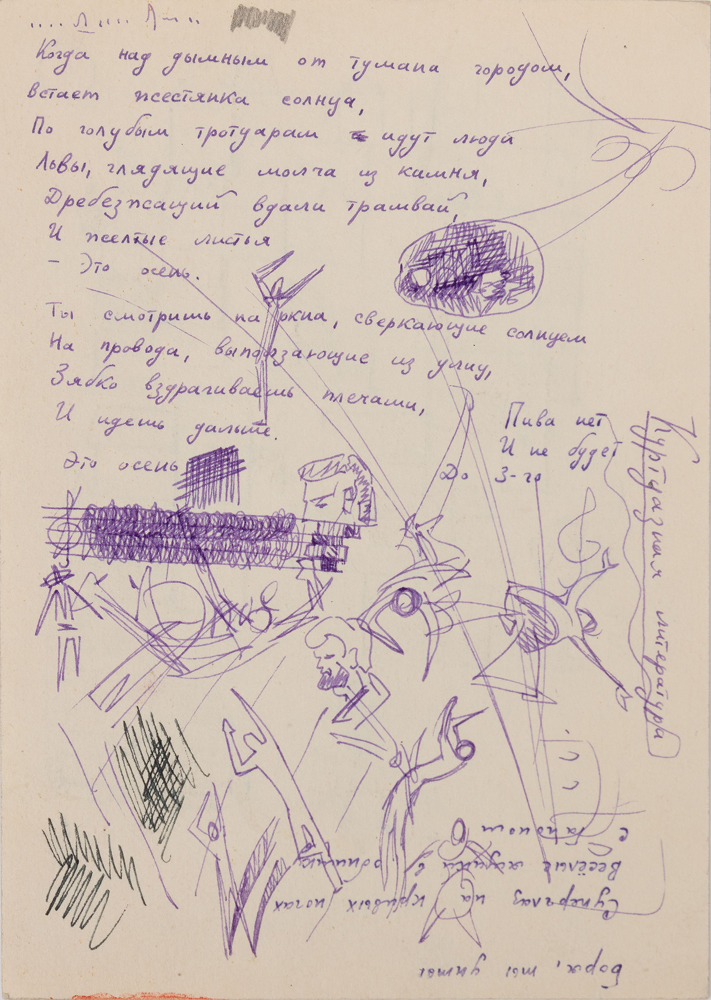 Когда над дымным от тумана городом,
встает жестянка солнца,
По голубым тротуарам идут люди
Львы, глядящие молча из камня,
Дребезжащий вдали трамвай,
И желтые листья
- Это осень.
Ты смотришь на окна, сверкающие солнцем
На провода, выползающие из улиц,
Зябко вздрагиваешь плечами,
И идешь дальше.
Это осень
Пива нет
И не будет
До 3-го
Куртуазная литература
Боря, ты учти
Суперглаз на кривых ногах
Весёлые ящики в
с